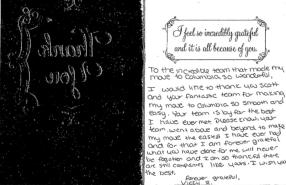 Thank
You
I feel so incredibly grateful
and it is all because of you.
To the incredible team that made my
move to Columbia so wonderful,
I would like to thank you Scott
and your fantastic team for making
my move to Columbia so smooth and
easy. Your team is by far the best
I have ever met. Please know your
team went above and beyond to make
my move the easiest I have ever had
and for that I am forever grateful.
What you have done for me will never
be forgotten and I am so thankful there
are still companies like yours. I wish you
the best.
Forever grateful,